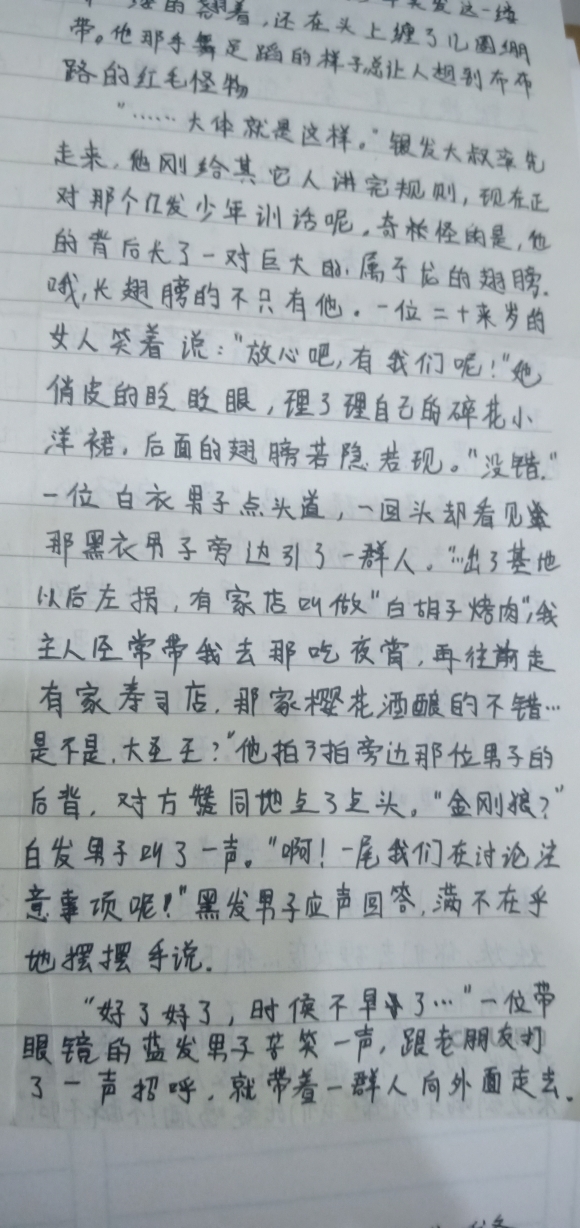 的翘着，还在头上缠了几圈绷
带。他那手舞足蹈的样子总让人想到布布
路的红毛怪物
“……大体就是这样。”银发大叔率先
走来，他刚给其它人讲完规则，现在正
对那个几发少年训话呢。奇怪的是，他
的背后长了一对巨大的、属于龙的翅膀.
哦，长翅膀的不只有他。一位二十来岁的
女人笑着说：“放心吧，有我们呢！”她
俏皮的眨眨眼，理了理自己的碎花小
洋裙，后面的翅膀若隐若现。“没错.”
一位白衣男子点头道，一回头却看见
那黑衣男子旁边引了一群人。“…出了基地
以后左拐，有家店叫做“白胡子烤肉”，我
主人经常带我去那吃夜宵，再往前走
有家寿司店，那家樱花酒酿的不错…
是不是，大圣王？”他拍了拍旁边那位男子的
后背，对方赞同地点了点头。“金刚狼？”
白发男子叫了一声。“啊！一尾我们在讨论注
意事项呢！”黑发男子应声回答，满不在乎
地摆摆手说.
“好了好了，时候不早了…”一位带
眼镜的蓝发男子苦笑一声，跟老朋友打
了一声招呼，就带着一群人向外面走去.